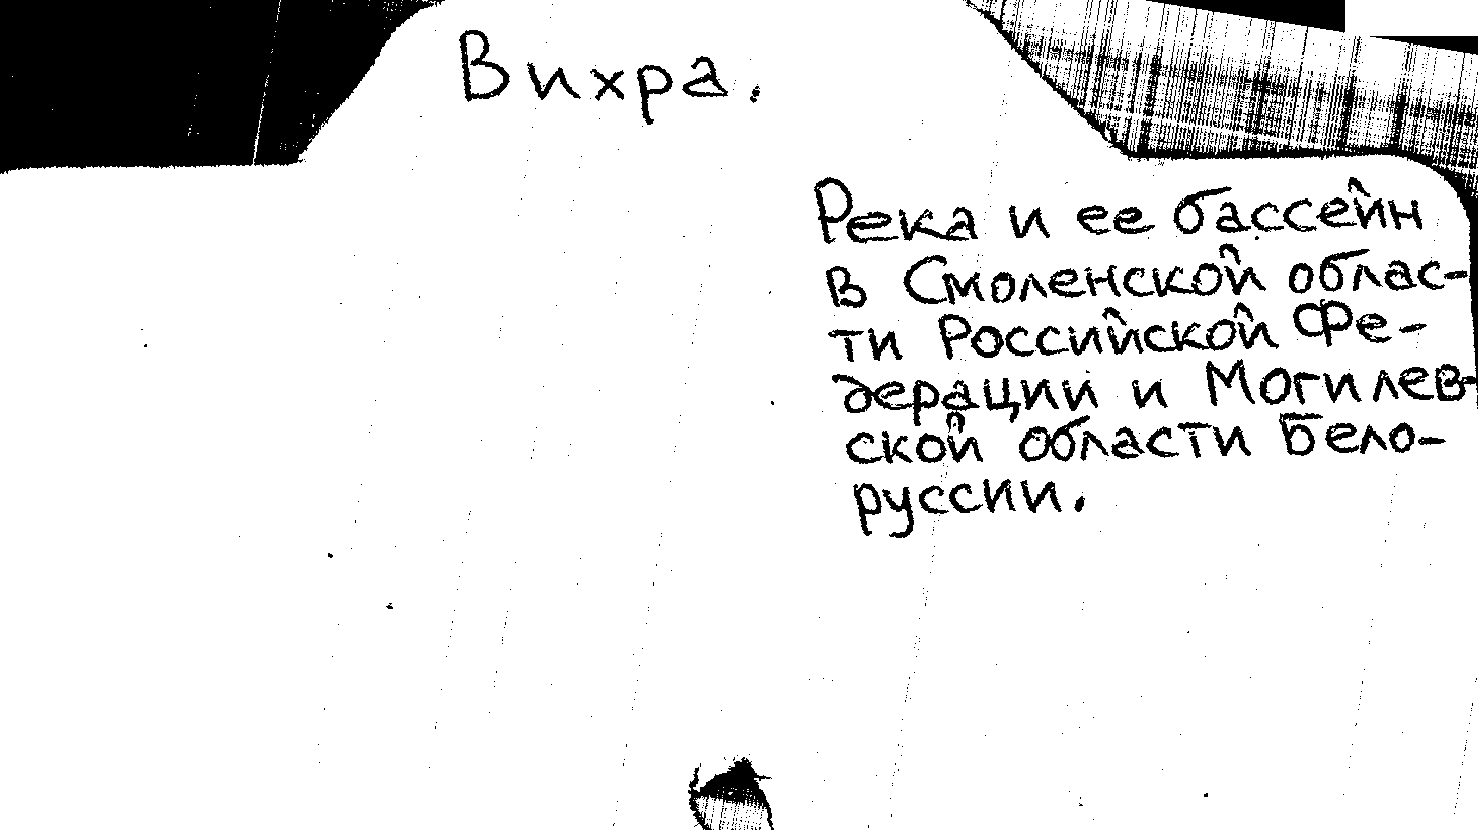 Вихра.
Река и ее бассейн
в Смоленской облас-
ти Российской Фе-
дерации и Могилев-
ской области Бело-
руссии.